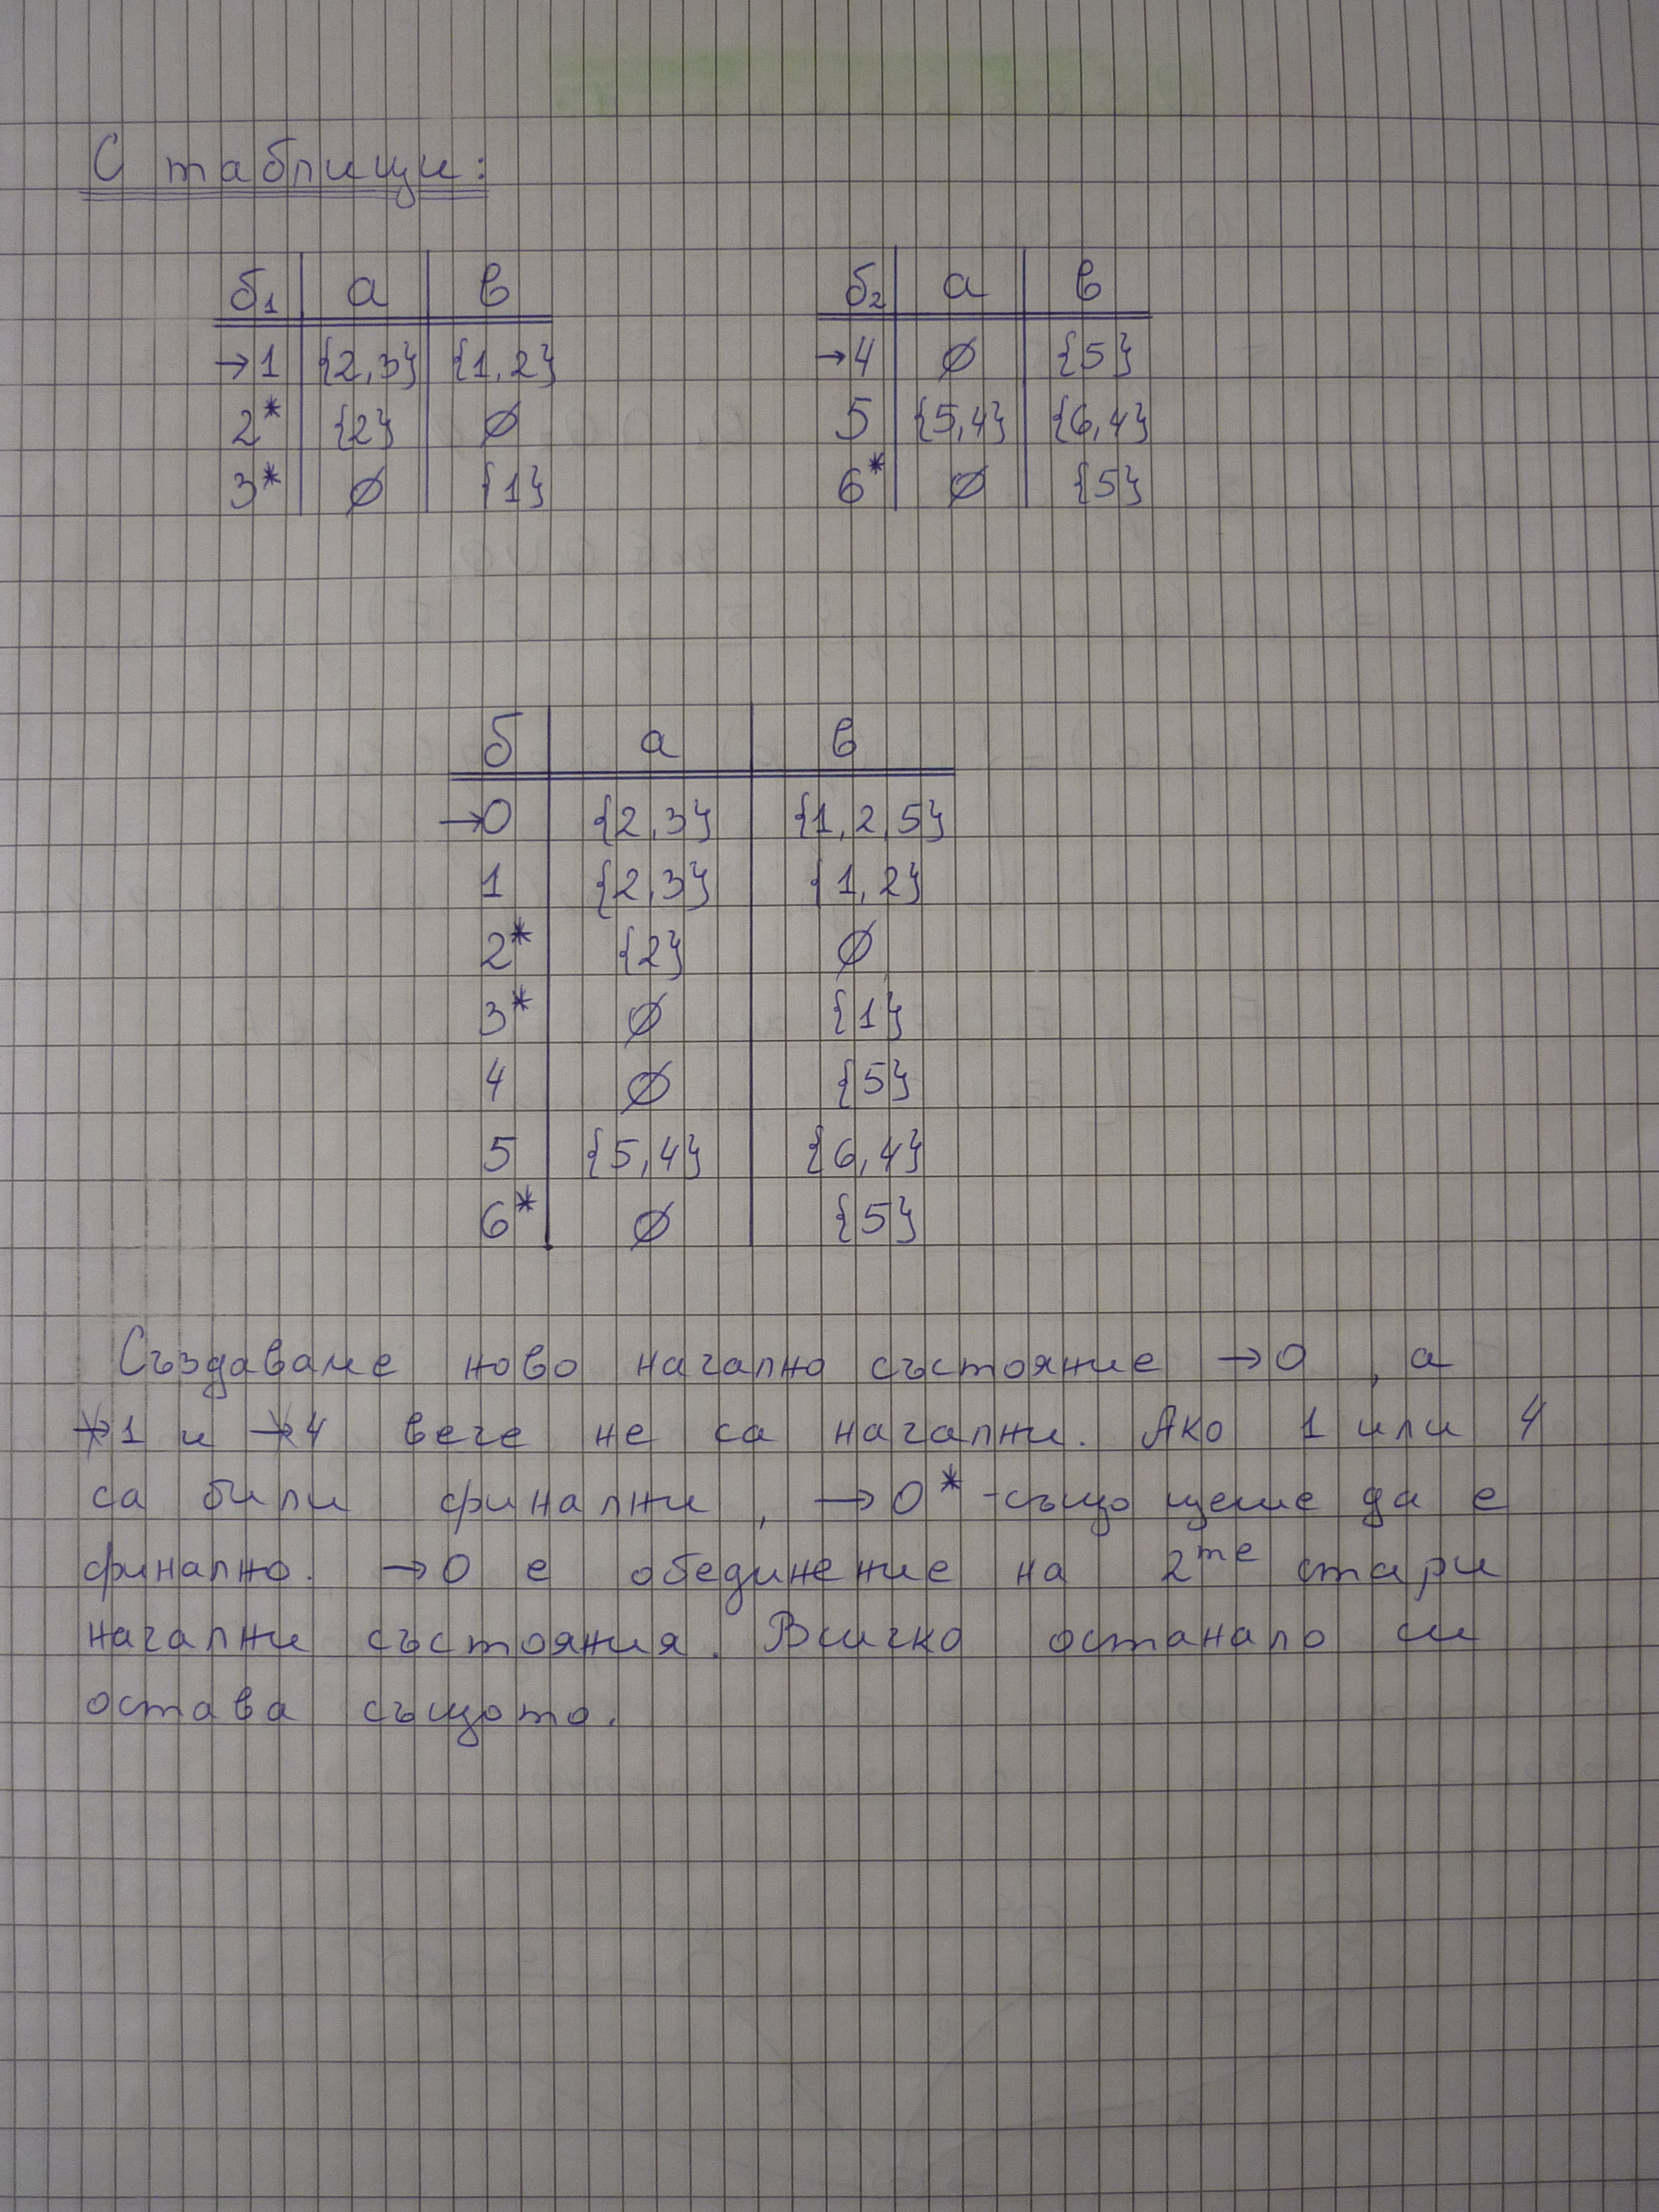 С таблици:
б₁ | а | в
→1 | {2,3} | {1,2}
2* | {2} | ∅
3* | ∅ | {1}
б₂ | а | в
→4 | ∅ | {5}
5 | {5,4} | {6,4}
6* | ∅ | {5}
б | а | в
→0 | {2,3} | {1,2,5}
1 | {2,3} | {1,2}
2* | {2} | ∅
3* | ∅ | {1}
4 | ∅ | {5}
5 | {5,4} | {6,4}
6* | ∅ | {5}
Създаваме ново начално състояние →0, а
→1 и →4 вече не са начални. Ако 1 или 4
са били финални, →0* също щеше да е
финално. →0 е обединение на 2те стари
начални състояния. Всичко останало си
остава същото.